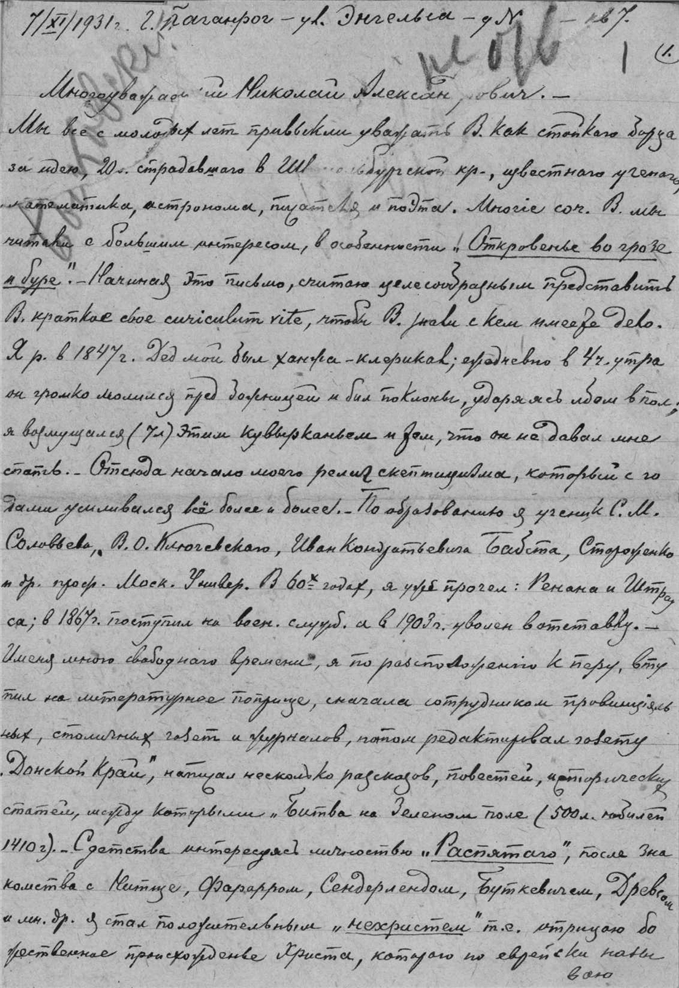 7/XI/1931 г. г. Таганрог – ул. Энгельса – д № – кв 7.
1 (1.
Многоуважаемый Николай Александрович. –
Мы все с молодых лет привыкли уважать В. как стойкого борца
за идею, 20 л. страдавшего в Шл бургской кр-, известного ученого,
математика, астронома, писателя и поэта. Многие соч. В. мы
читали с большим интересом, в особенности „Откровенье во грозе
и буре". – Начиная это письмо, считаю целесообразным представить
В. краткое свое curiculum vite, чтобы В. знали с кем имеете дело.
Я р. в 1847 г. Дед мой был ханжа-клерикал; ежедневно в 4 ч. утра
он громко молился пред божницей и бил поклоны, ударяясь лбом в пол;
я возмущался (7 л) этим кувырканьем и тем, что он не давал мне
спать. – Отсюда начало моего религ скептицизма, который с го
дами усиливался всё более и более. – По образованию я ученик С. М.
Соловьева, В. О. Ключевскаго, Ивана Кондратьевича Бабста, Стороженко
и др. проф. Моск. Универ. В 60х годах, я уже прочел: Ренана и Штра
са; в 1867 г. поступил на воен. служб. а в 1903 г. уволен в отставку. –
Имея много свободнаго времени, я по расположению к перу, всту
пил на литературное поприще, сначала сотрудником провинціаль
ных, столичных газет и журналов, потом редактировал газету
„Донской Край", написал несколько разсказов, повестей, исторических
статей, между которыми „Битва на Зеленом поле (500 л. юбилей
1410 г). – С детства интересуясь личностью „Распятаго", после зна
комства с Нитще, Фарарром, Сендерлендом, Буткевичем, Древсом
и мн. др. я стал положительным „нехристем" т.е. отрицаю бо
жественное происхожденье Христа, которого по еврейски назы
ваю